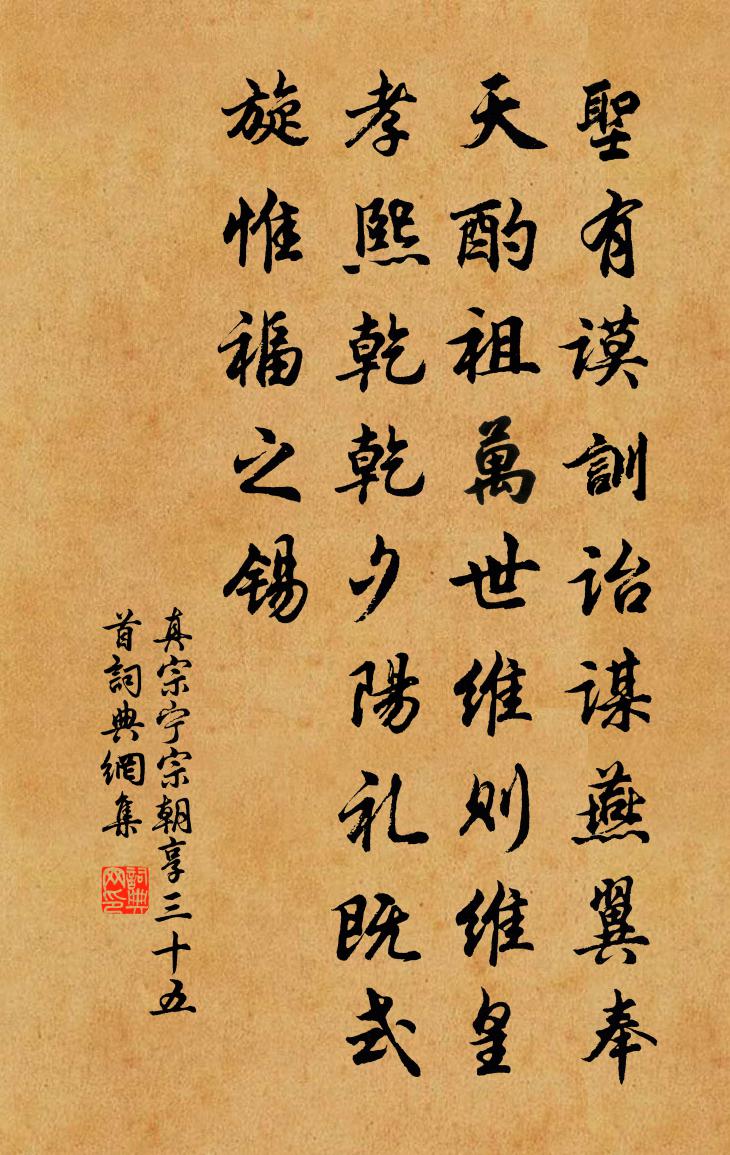 聖有謨訓詒謀燕翼奉
天酌祖萬世維則維皇
孝熙乾乾夕陽礼既式
旋惟福之錫
真宗宁宗朝享三十五
首詞典網集
詞典网印